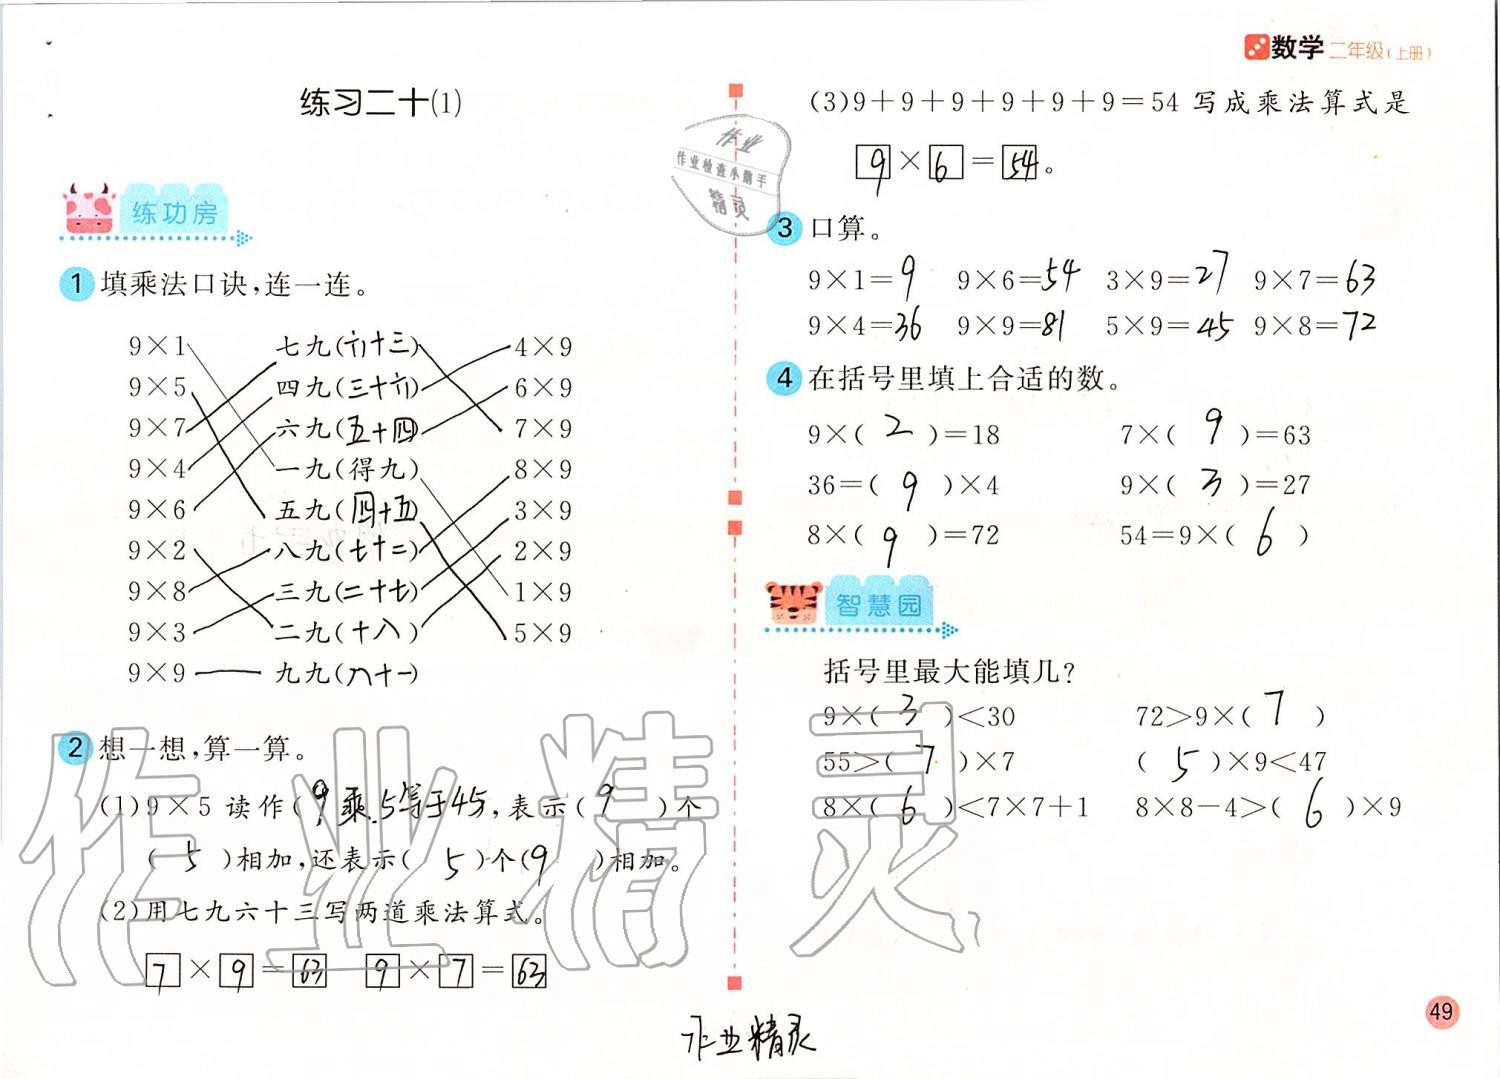 数学 二年级(上册)
练习二十(1)
练功房
1 填乘法口诀,连一连。
9×1 七九(六十三) 4×9
9×5 四九(三十六) 6×9
9×7 六九(五十四) 7×9
9×4 一九(得九) 8×9
9×6 五九(四十五) 3×9
9×2 八九(七十二) 2×9
9×8 三九(二十七) 1×9
9×3 二九(十八) 5×9
9×9 九九(八十一)
2 想一想,算一算。
(1)9×5读作(9乘5等于45,表示(9)个
(5)相加,还表示(5)个(9)相加。
(2)用七九六十三写两道乘法算式。
7×9=63 9×7=63
(3)9+9+9+9+9+9=54写成乘法算式是
9×6=54。
3 口算。
9×1=9 9×6=54 3×9=27 9×7=63
9×4=36 9×9=81 5×9=45 9×8=72
4 在括号里填上合适的数。
9×(2)=18 7×(9)=63
36=(9)×4 9×(3)=27
8×(9)=72 54=9×(6)
智慧园
括号里最大能填几?
9×(3)<30 72>9×(7)
55>(7)×7 (5)×9<47
8×(6)<7×7+1 8×8-4>(6)×9
作业
作业检查小帮手
精灵
作业精灵
作业精灵
49